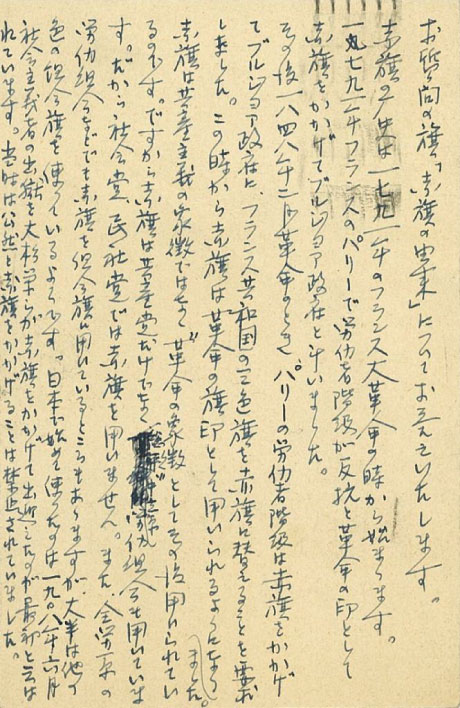 お質問の旗「赤旗の由来」についてお答えいたします。
赤旗の歴史は一七九一年のフランス大革命の時から始まります。
一七九一年フランスのパリーで労仂者階級が反抗と革命の印として
赤旗をかかげてブルジョア政府と斗いました。
その後一八四八年二月革命のとき、パリーの労仂者階級は赤旗をかかげ
てブルジョア政府に、フランス共和国の三色旗を赤旗に替えることを要求
しました。この時から赤旗は"革命の旗印として用いられるようになり
ました。
赤旗は共産主義の象徴ではなく"革命の象徴としてその後用いられてい
るのです。ですから赤旗は共産党だけでなく 労仂組合も用いていま
す。だから社会党、民社党では赤旗を用いません。また全労系の
労仂組合などでも赤旗を組合旗に用いているところもありますが、大半は他の
色の組合旗を使っているようです。日本で始めて使ったのは一九〇八年六月
社会主義者の出獄を大杉栄らが赤旗をかかげて出迎えたのが最初と云は
れています。当時は公然と赤旗をかかげることは禁止されていました。